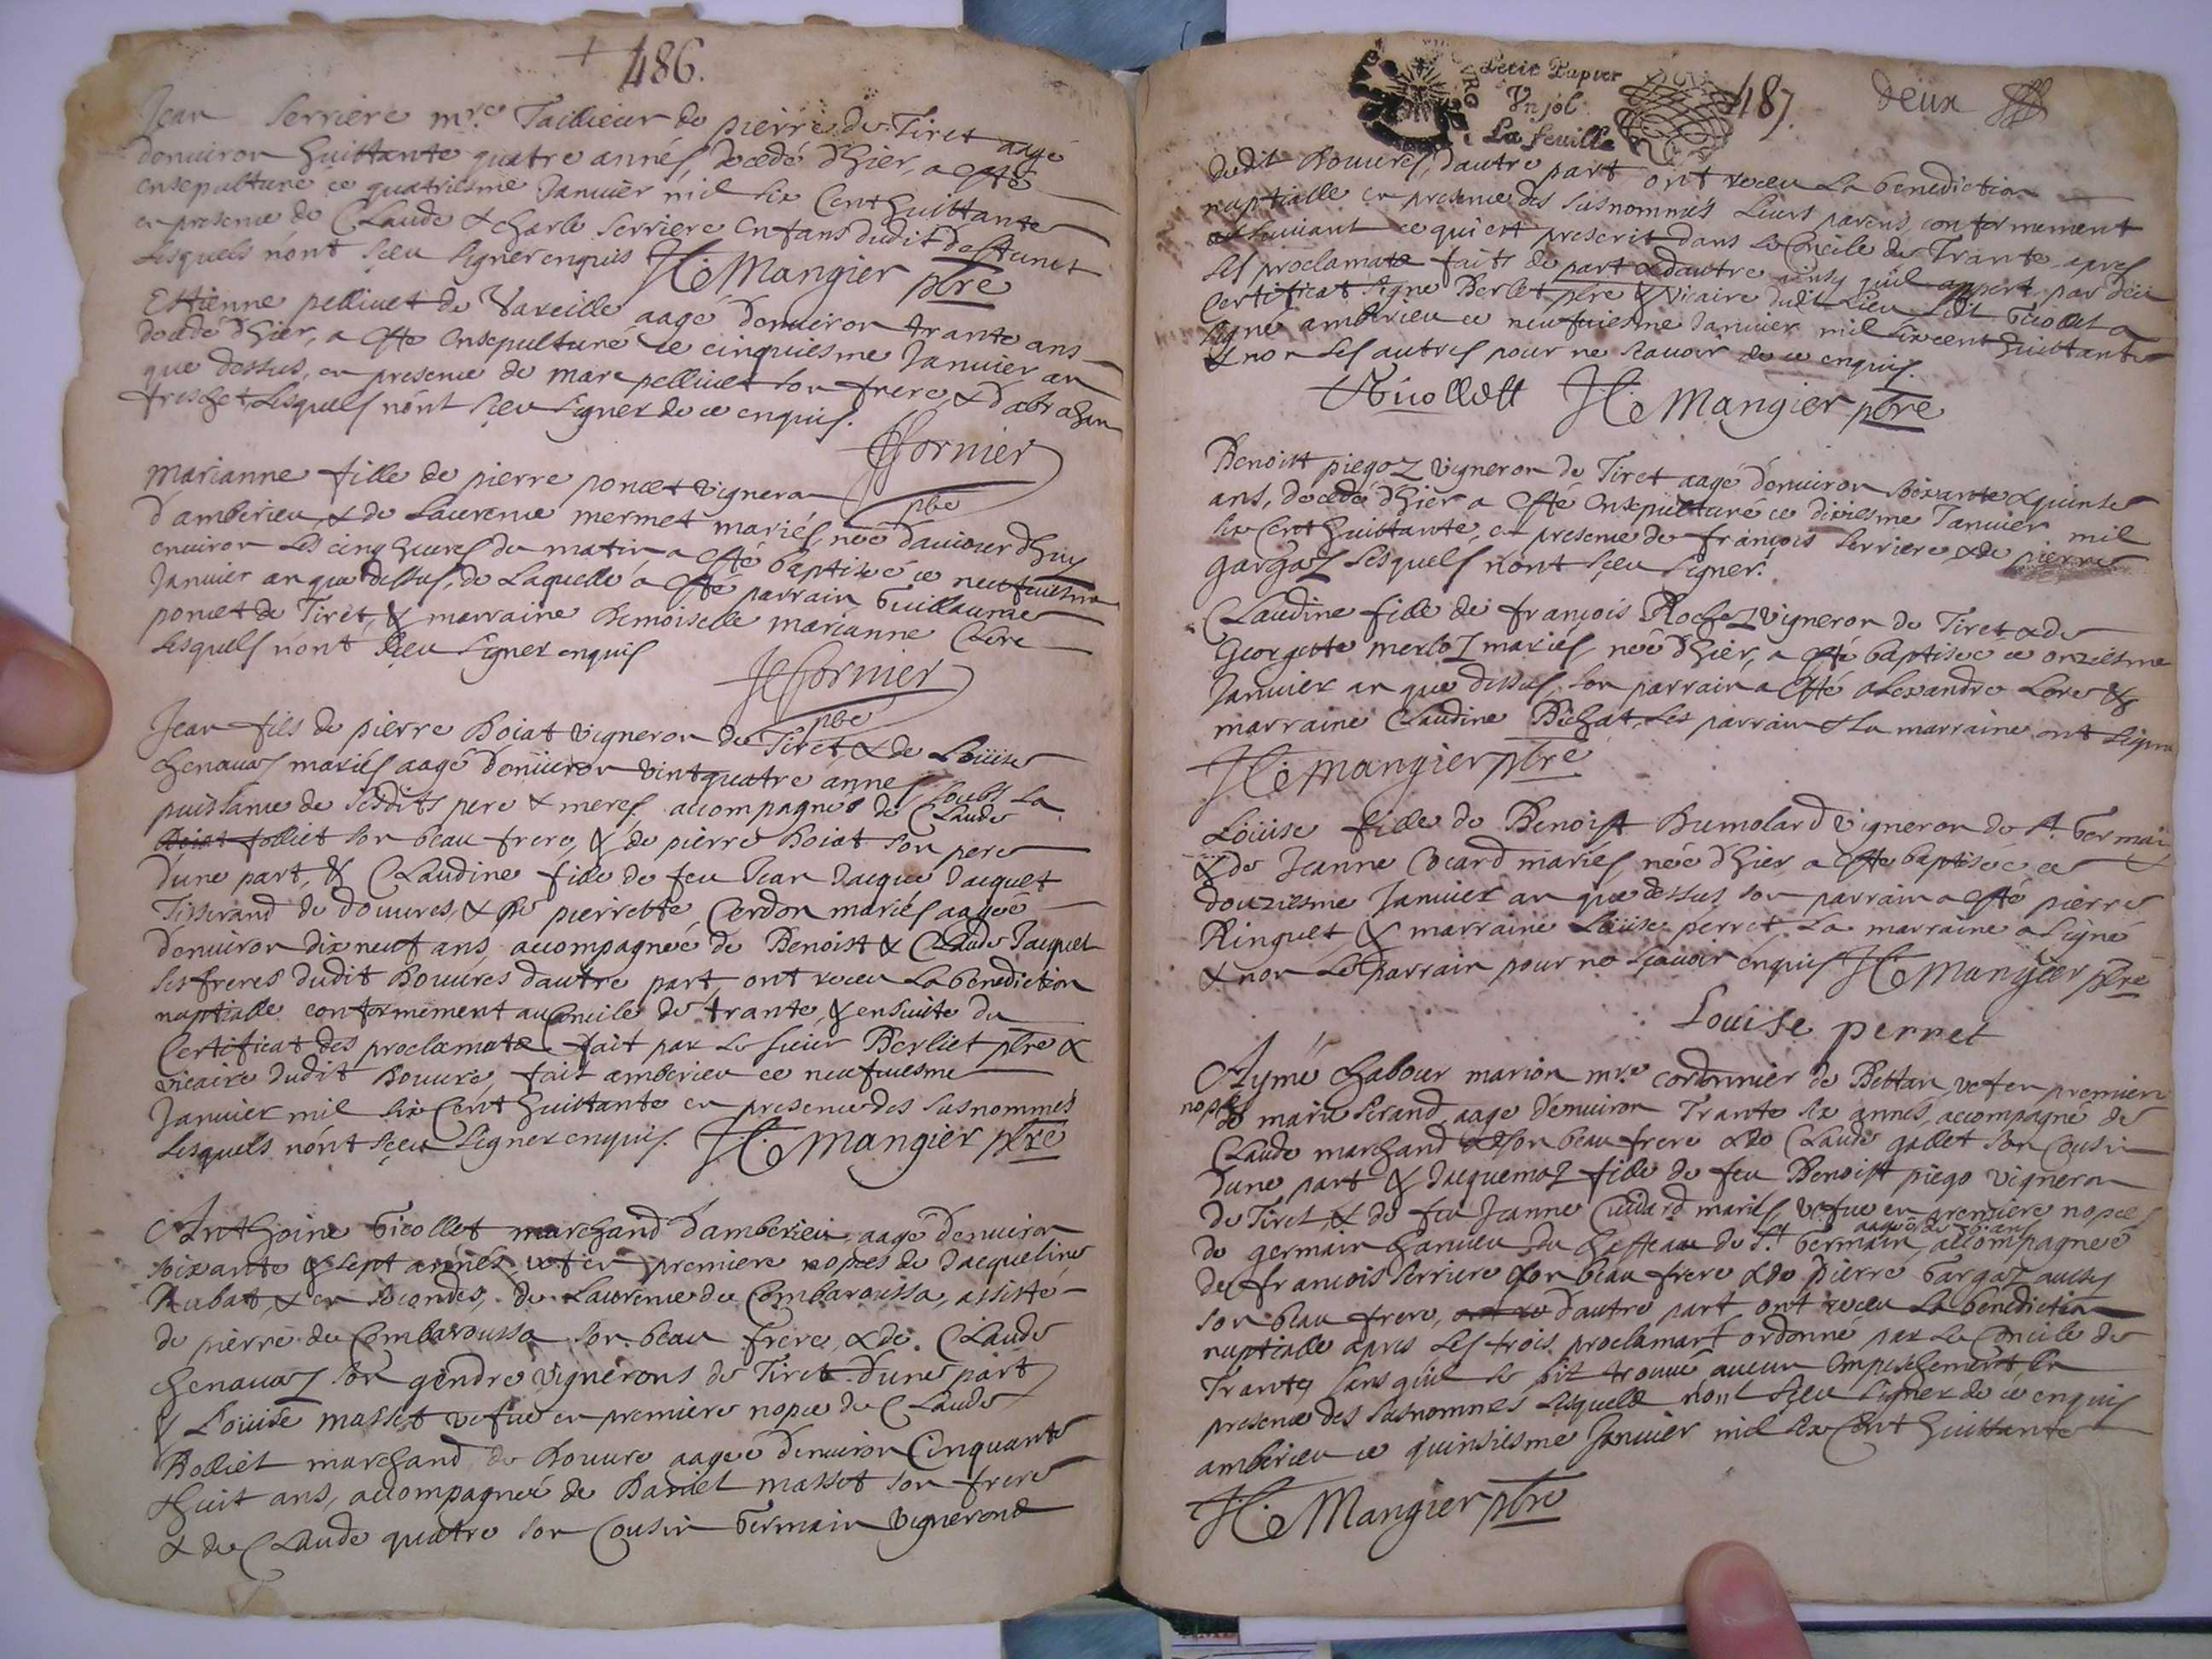 + 486.
Jean Serriere mre Taillieur de pierre de Tiret aagé
denuiron huittante quatre années, decedé d'hier, a esté
ensepulturé ce quatriesme Januier mil six Cent huittante
en presence de Claude & Charle Serriere enfans dudit deffunct
lesquels n'ont sçeu signer enquis H C Mangier pbre
Estienne pelliuet de Vareille aagé denuiron trante ans
decedé d'hier, a esté ensepulturé le cinquiesme Januier an
que dessus, en presence de marc pelliuet son frere, & d'abraham
freschet, lesquels n'ont sçeu signer de ce enquis.
Jfornier
pbe
Marianne fille de pierre poncet vigneron
d'amberieu, & de Laurence mermet mariés, née d'auiourdhuy
enuiron les cinq heures du matin, a esté baptisée ce neufuiesme
Januier an que dessus, de laquelle a esté parrain Guillaume
poncet de Tiret, & marraine Demoiselle marianne Clere
lesquels n'ont sçeu signer enquis
Jefornier
pbe
Jean fils de pierre Boiat vigneron de Tiret, & de Loüise
Chenauaz mariés aagé denuiron vint quatre années soubs la
puissance de sesdits pere & meres. accompagnés de Claude
folliet son beau frere, & de pierre boiat son pere
d'une part, & Claudine fille de feu Jean Jacque Jacquet
Tisserand de douures, & de pierrette Cerdon mariés aagée
denuiron dix neuf ans, accompagnée de Benoist & Claude Jacquet
ses freres dudit Douures d'autre part, ont receu la benediction
nuptialle conformement au Concile de trante, & ensuite du
Certificat des proclamata fait par le sieur Berliet pbre &
vicaire dudit Douure, fait amberieu ce neufuiesme
Januier mil six Cent huittante en presence des susnommés
lesquels n'ont sçeu signer enquis. H C Mangier pbre
Anthoine Gicollet marchand d'amberieu, aagé denuiron
soixante & sept années, vef en premiere nopces de Jacqueline
Rubat, & en secondes, de Laurence de Combaroussa, assisté
de pierre de Combaroussa son beau frere, & de Claude
Chenauaz son gendre vignerons de Tiret d'une part
& Loüise masset vefue en premiere nopce de Claude
Rolliet marchand de Douure aagée denuiron Cinquante
& huit ans, accompagnée de Daniel masset son frere
& de Claude quatre son Cousin Germain vignerons
Petit Papier
Vn sol
La feuille
487. deux
dudit Douures, d'autre part ont receu la benediction
nuptialle en presence des susnommés leurs parens, conformement
& suiuant ce qui est prescrit dans le Concile de Trante, apres
les proclamata faits de part & d'autre ainsy quil appert par deu
Certificat signe Berliet pbre & vicaire dudit lieu ledit Gicollet a
signé amberieu ce neufuiesme Januier mil six cent huittante
& non les autres pour ne scauoir de ce enquis.
Gicollett H C Mangier pbre
Benoist piegoz vigneron de Tiret aagé denuiron soixante & quinse
ans, decedé d'hier a esté ensepulturé ce dixiesme Januier mil
six Cent huittante, en presence de françois Serriere & de pierre
Gargaz lesquels n'ont sçeu signer.
Claudine fille de françois Rochez vigneron de Tiret & de
Georgette merloz mariés, née d'hier, a esté baptisée ce onziesme
Januier an que dessus, son parrain a esté alexandre Lore &
marraine Claudine Bichat, les parrain & la marraine ont signé
H C Mangier pbre
Loüise fille de Benoist Dumolard vigneron de St. Germain
& de Jeanne Cocard mariés née d'hier, a esté baptisée ce
douziesme Januier an que dessus, son parrain a esté pierre
Ringuet, & marraine Loüise perret, la marraine a signé
& non le parrain pour ne sçauoir enquis H C Mangier pbre
Louise perret
Aymé Chabour marion mre cordonnier de Bettan, vef en premiere
nopce de marie Serand, aagé denuiron Trante six années, accompagné de
Claude marchand son beau frere & de Claude gallet son Cousin
d'une part & Jaquemaz fille de feu Benoist piego vigneron
de Tiret, & de feu Jeanne Cudard mariés, vefue en premiere nopces
de germain hanuieu du Chasteau de St. Germain, accompagnée
de francois Serriere son beau frere & de pierre Gargaz aussy
son beau frere, d'autre part, ont receu la benediction
nuptialle apres les trois proclamats ordonné par le Concile de
Trante, sans quil se soit trouué aucun empeschement en
presence des susnommés lesquels n'ont sçeu signer de ce enquis
amberieu ce quinsiesme Januier mil six Cent huittante
H C Mangier pbre